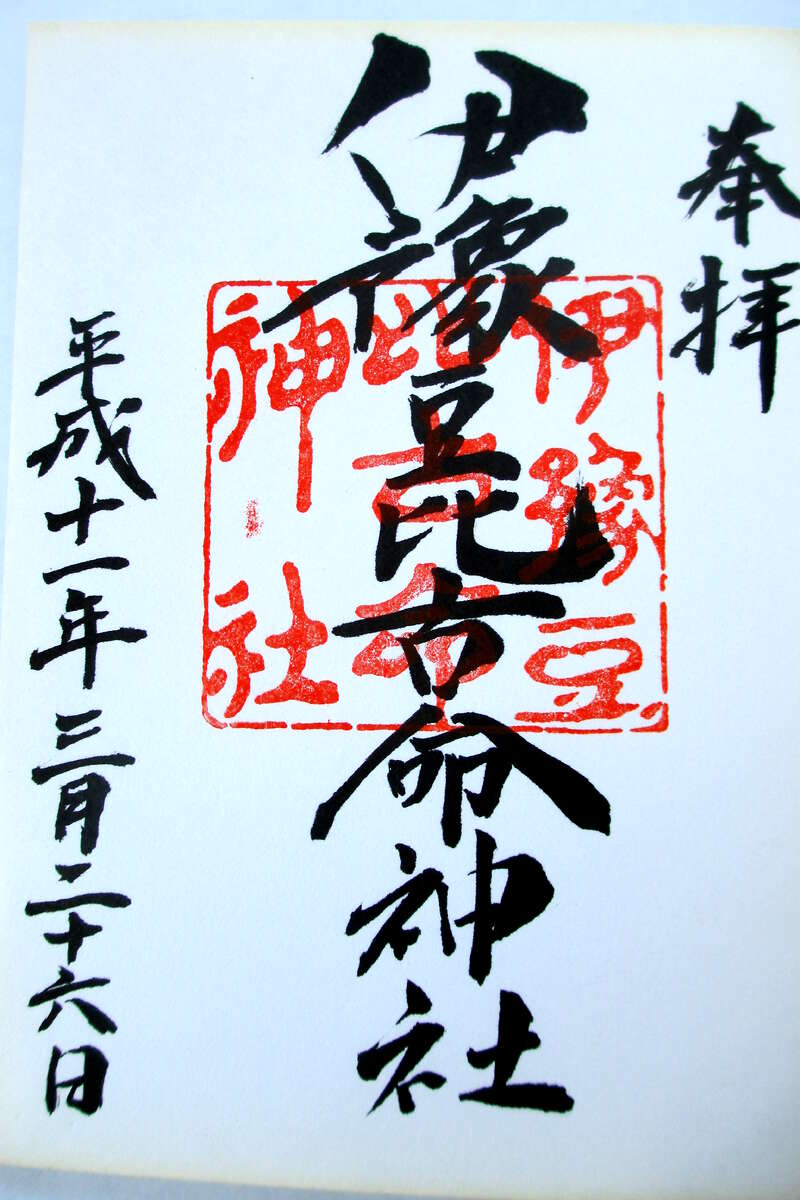 奉拝
伊豫豆比古命神社
伊豫豆
比古命
神社
平成十一年三月二十六日